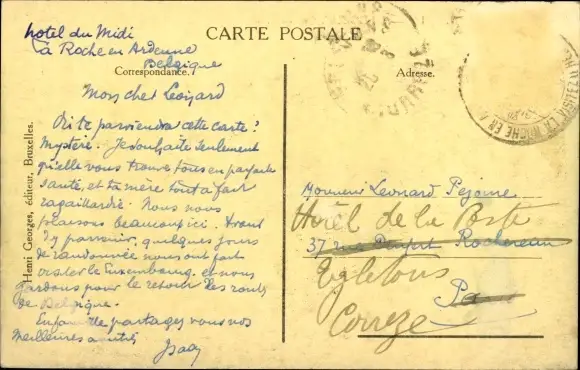 CARTE POSTALE
Correspondance.
Adresse.
Henri Georges, éditeur, Bruxelles.
hotel du Midi
La Roche en Ardenne
Belgique
Mon cher Leonard
Où te parviendra cette carte?
Mystère. Je souhaite seulement
qu'elle vous trouve tous en parfaite
santé, et ta mère tout à fait
ragaillardie. Nous nous
plaisons beaucoup ici. Avant
d'y parvenir, quelques jours
de randonnée nous ont fait
visiter le Luxembourg, et nous
gardons pour le retour les routes
de Belgique.
partages vous nos
meilleures amitiés
Monsieur Leonard
Hôtel de la Poste
37 rue Rochereau
Egletons
Corrèze